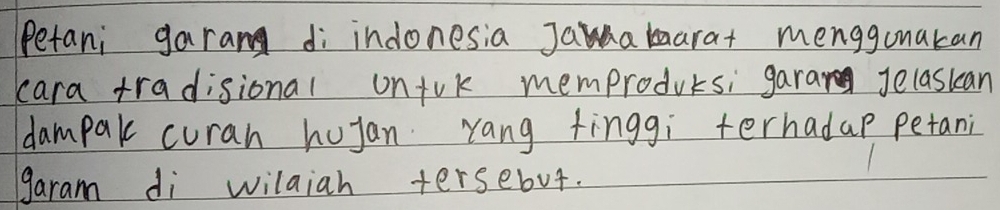 Petani garam di indonesia Jawa barat menggunakan
cara tradisional untuk memproduksi garam jelaskan
dampak curah hujan. yang tinggi terhadap petani
garam di wilaiah tersebut.